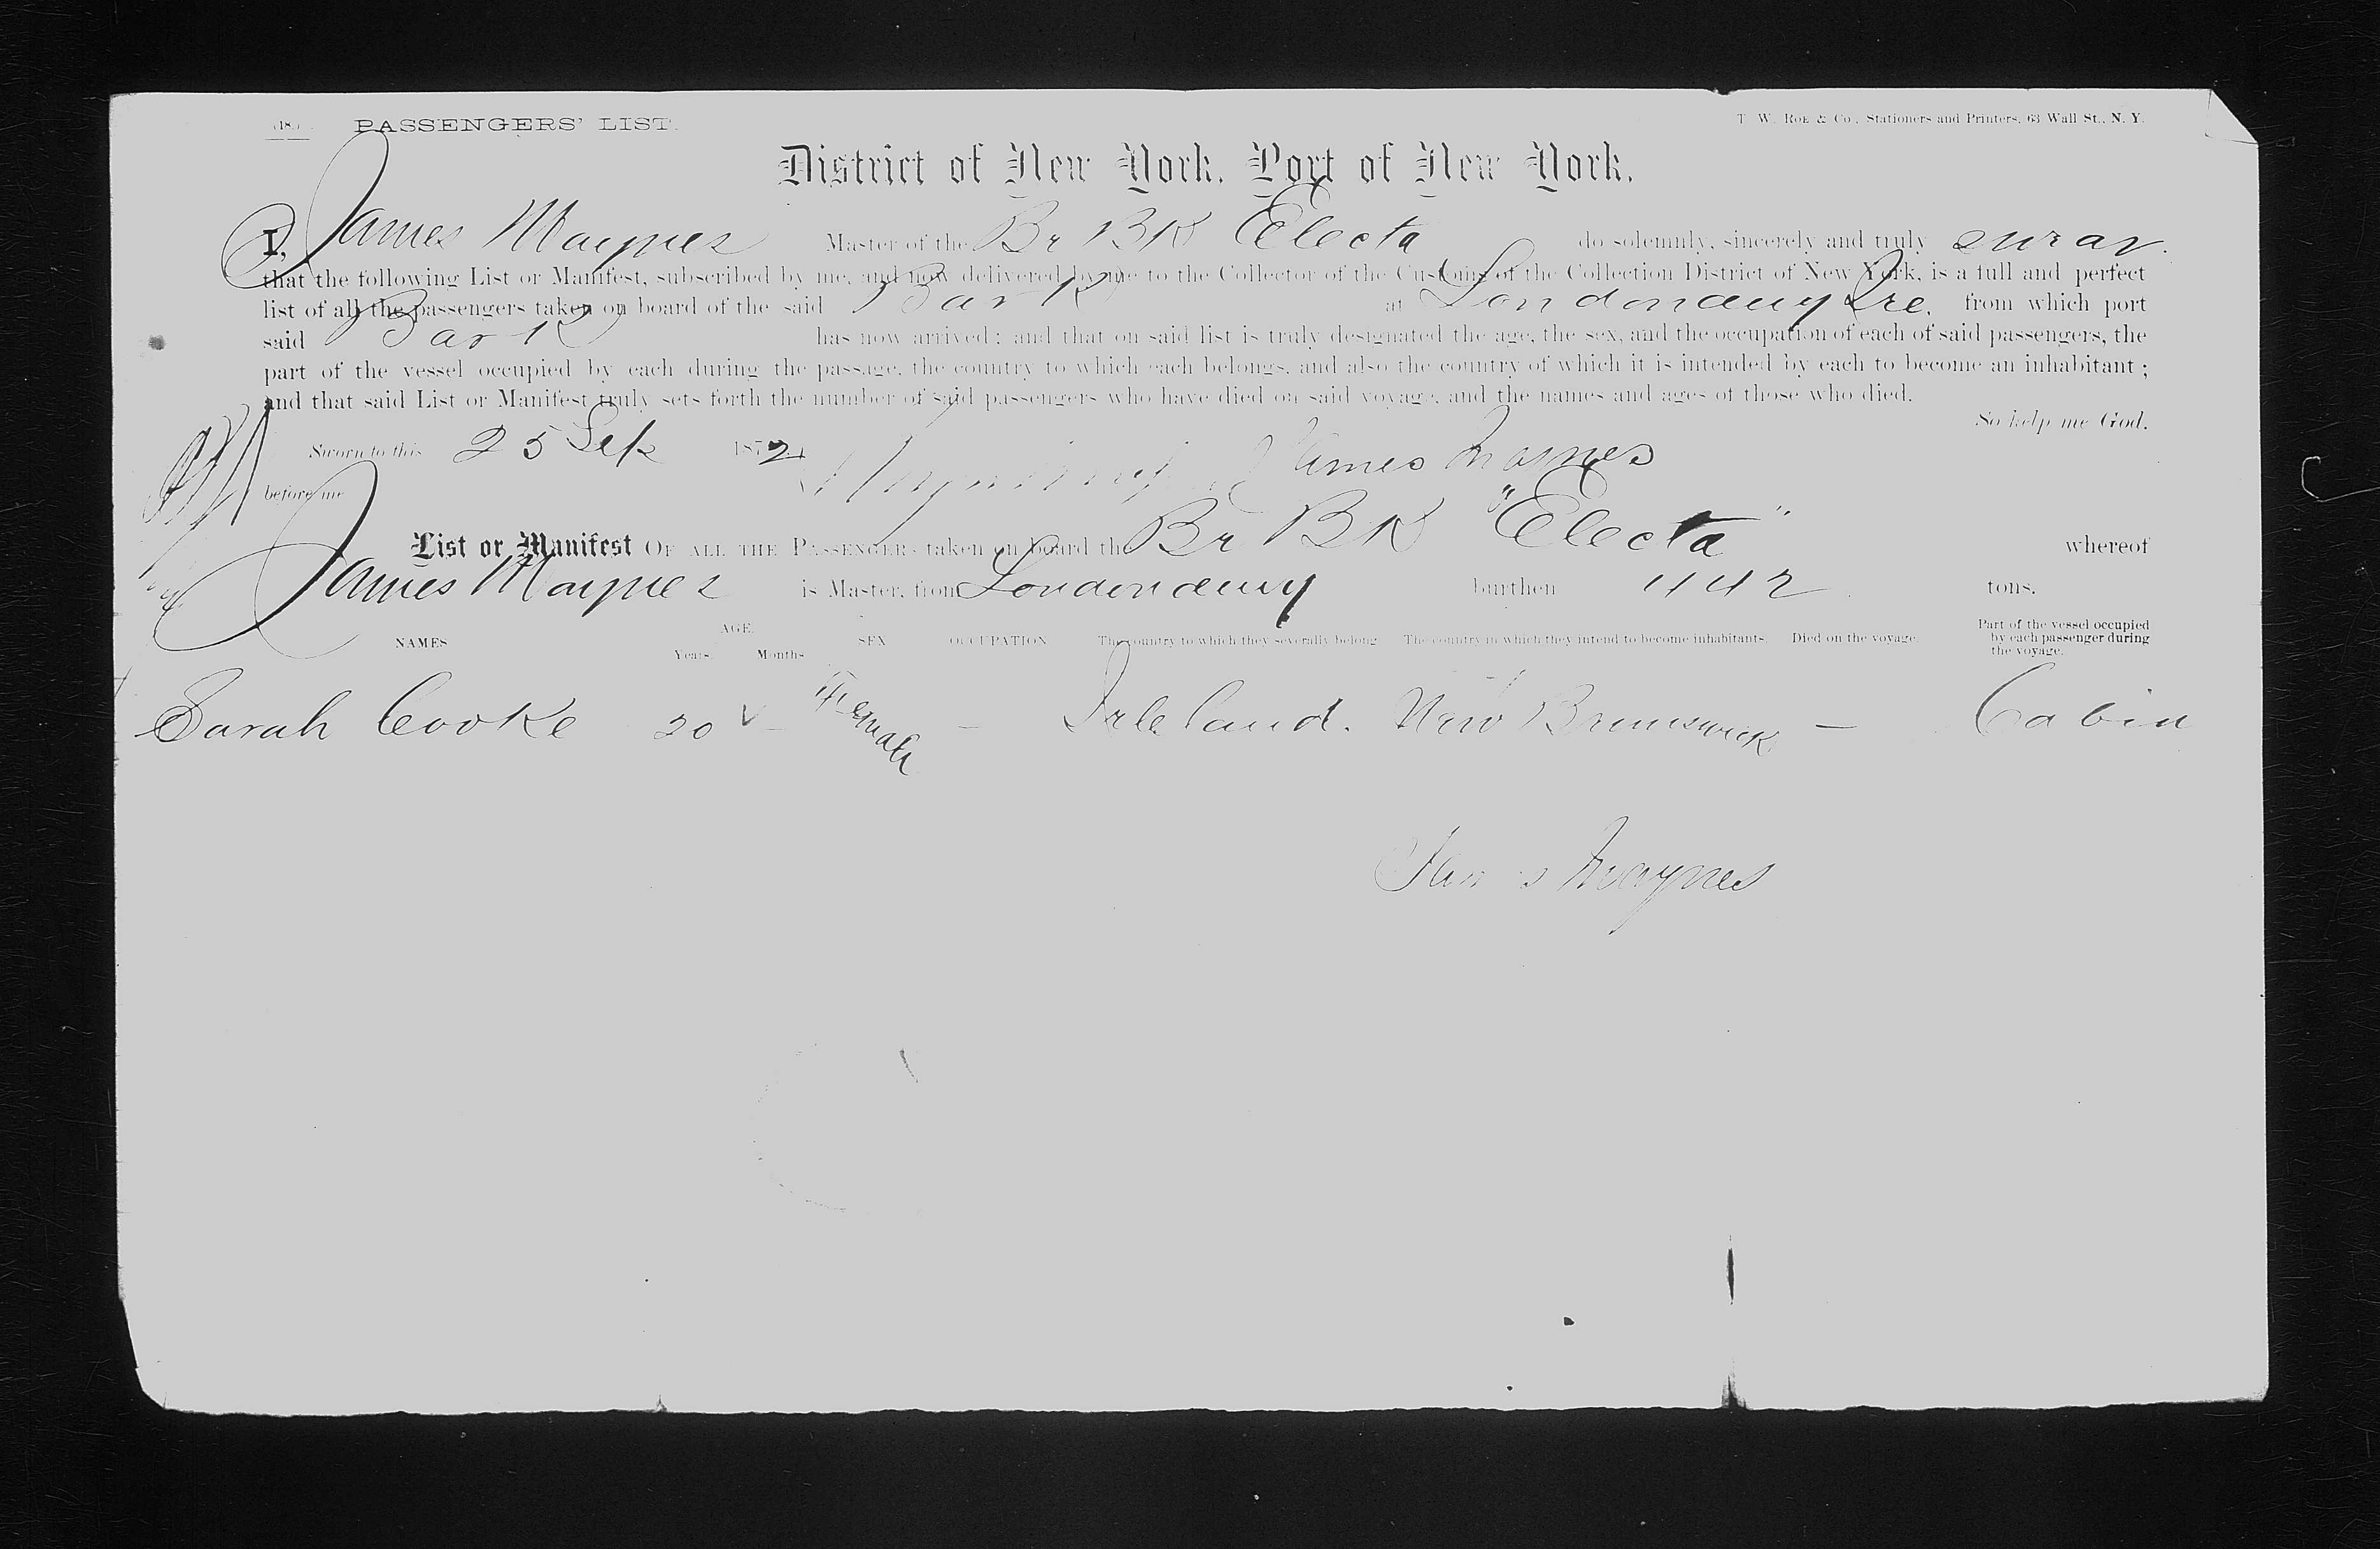 (18.) PASSENGERS' LIST. T. W. Roe & Co., Stationers and Printers, 63 Wall St., N. Y.
District of New York, Port of New York.
I, James Maynes Master of the Br BK Electa do solemnly, sincerely and truly swear.
that the following List or Manifest, subscribed by me, and now delivered by me to the Collector of the Customs of the Collection District of New York, is a full and perfect
list of all the passengers taken on board of the said Bark at Londonderry Ire. from which port
said Bark has now arrived; and that on said list is truly designated the age, the sex, and the occupation of each of said passengers, the
part of the vessel occupied by each during the passage, the country to which each belongs, and also the country of which it is intended by each to become an inhabitant;
and that said List or Manifest truly sets forth the number of said passengers who have died on said voyage, and the names and ages of those who died.
So help me God.
Sworn to this 25 Sep 1872 James Maynes
before me
List or Manifest OF ALL THE PASSENGERS taken on board the Br BK "Electa" whereof
James Maynes is Master, from Londonderry burthen 442 tons.
NAMES AGE. Years. Months. SEX OCCUPATION The country to which they severally belong. The country in which they intend to become inhabitants. Died on the voyage. Part of the vessel occupied by each passenger during the voyage.
Sarah Cooke 20 ✓ – Female – Ireland. New Brunswick – Cabin
James Maynes